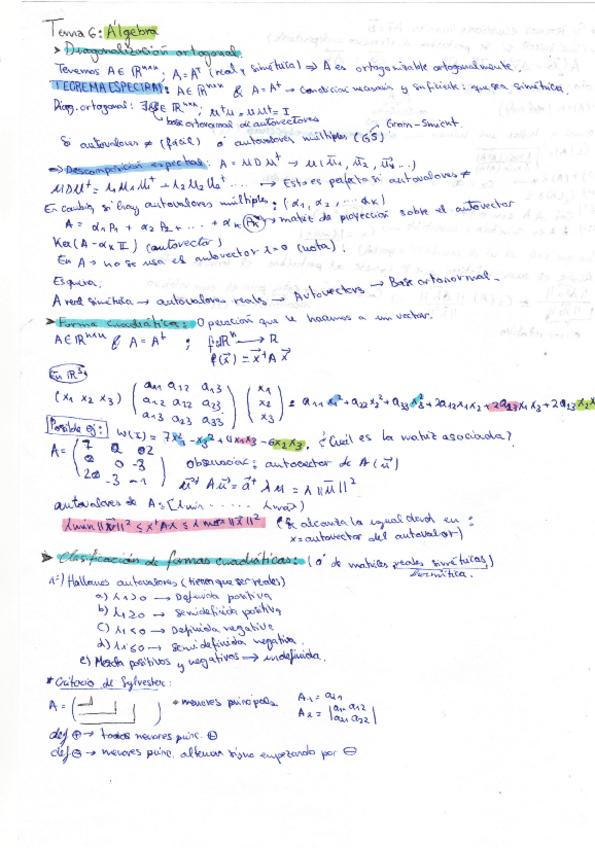 Tema 6: Álgebra
> Diagonalización ortogonal.
Tenemos A∈ℝⁿˣⁿ; A=Aᵗ (real y simétrica) ⇒ A es ortogonizable ortogonalmente.
TEOREMA ESPECTRAL: A∈ℝⁿˣⁿ & A=Aᵗ → Condición necesaria y suficiente: que sea simétrica.
Diag. ortogonal: ∃ ∈ ℝⁿˣⁿ; uᵗu = uuᵗ = I
base ortonormal de autovectores
Gram-Smicht.
Si autovalores ≠ (fácil) ó autovalores múltiples (GS)
⇒ Descomposición espectral: A = uDuᵗ → u(u⃗₁, u⃗₂, u⃗₃...)
uDuᵗ = λ₁u₁u₁ᵗ + λ₂u₂u₂ᵗ .... → Esto es perfecto si autovalores ≠
En cambio, si hay autovalores múltiples: (α₁, α₂, ... αₖ)
A = α₁P₁ + α₂P₂ + ... + αₖPₖ → matriz de proyección sobre el autovector
Ker(A - αₖI) (autovector)
En A → no se usa el autovector λ=0 (nota).
Esquema:
A real simétrica → autovalores reales → Autovectores → Base ortonormal.
> Forma cuadrática: Operación que le hacemos a un vector.
A∈ℝⁿˣⁿ & A=Aᵗ ; f: ℝⁿ → ℝ
f(x⃗) = x⃗ᵗ A x⃗
En ℝ³:
(x₁ x₂ x₃) (a₁₁ a₁₂ a₁₃ / a₁₂ a₂₂ a₂₃ / a₁₃ a₂₃ a₃₃) (x₁ / x₂ / x₃) = a₁₁x₁² + a₂₂x₂² + a₃₃x₃² + 2a₁₂x₁x₂ + 2a₁₃x₁x₃ + 2a₂₃x₂x
Posible ej: W(x⃗) = 7x₁² - x₃² + 4x₁x₃ - 6x₂x₃. ¿Cuál es la matriz asociada?
A = (7 0 02 / 0 0 -3 / 20 -3 -1)
observación: autovector de A (u⃗)
u⃗ᵗ A u⃗ = u⃗ᵗ λ u = λ ||u⃗||²
autovalores de A = [λmin ...... λmax]
λmin ||x⃗||² ≤ xᵗAx ≤ λmax ||x⃗||² (Se alcanza la igualdad en:
x = autovector del autovalor)
> Clasificación de formas cuadráticas: (ó de matrices reales simétricas)
hermítica.
1º) Hallamos autovalores (tienen que ser reales)
a) λ>0 → Definida positiva
b) λ≥0 → Semidefinida positiva
c) λ<0 → Definida negativa
d) λ≤0 → Semidefinida negativa.
e) Mezcla positivos y negativos → indefinida.
* Criterio de Sylvester:
A = ( ) * menores principales A₁ = a₁₁
A₂ = |a₁₁ a₁₂ / a₂₁ a₂₂|
def ⊕ → todos menores princ. ⊕
def ⊖ → menores princ. alternan signo empezando por ⊖